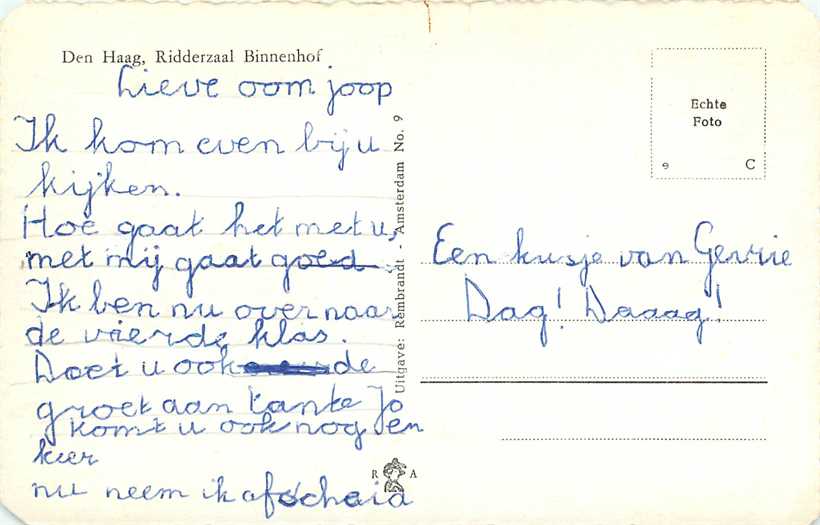 Den Haag, Ridderzaal Binnenhof
Lieve oom joop
Ik kom even bij u
kijken.
Hoe gaat het met u,
met mij gaat goed.
Ik ben nu over naar
de vierde klas.
Doet u ook de
groet aan tante Jo
komt u ook nog een
keer
nu neem ik afscheid
Uitgave: Rembrandt - Amsterdam No. 9
R A
Echte
Foto
9 C
Een kusje van Gerrie
Dag! Daaag!